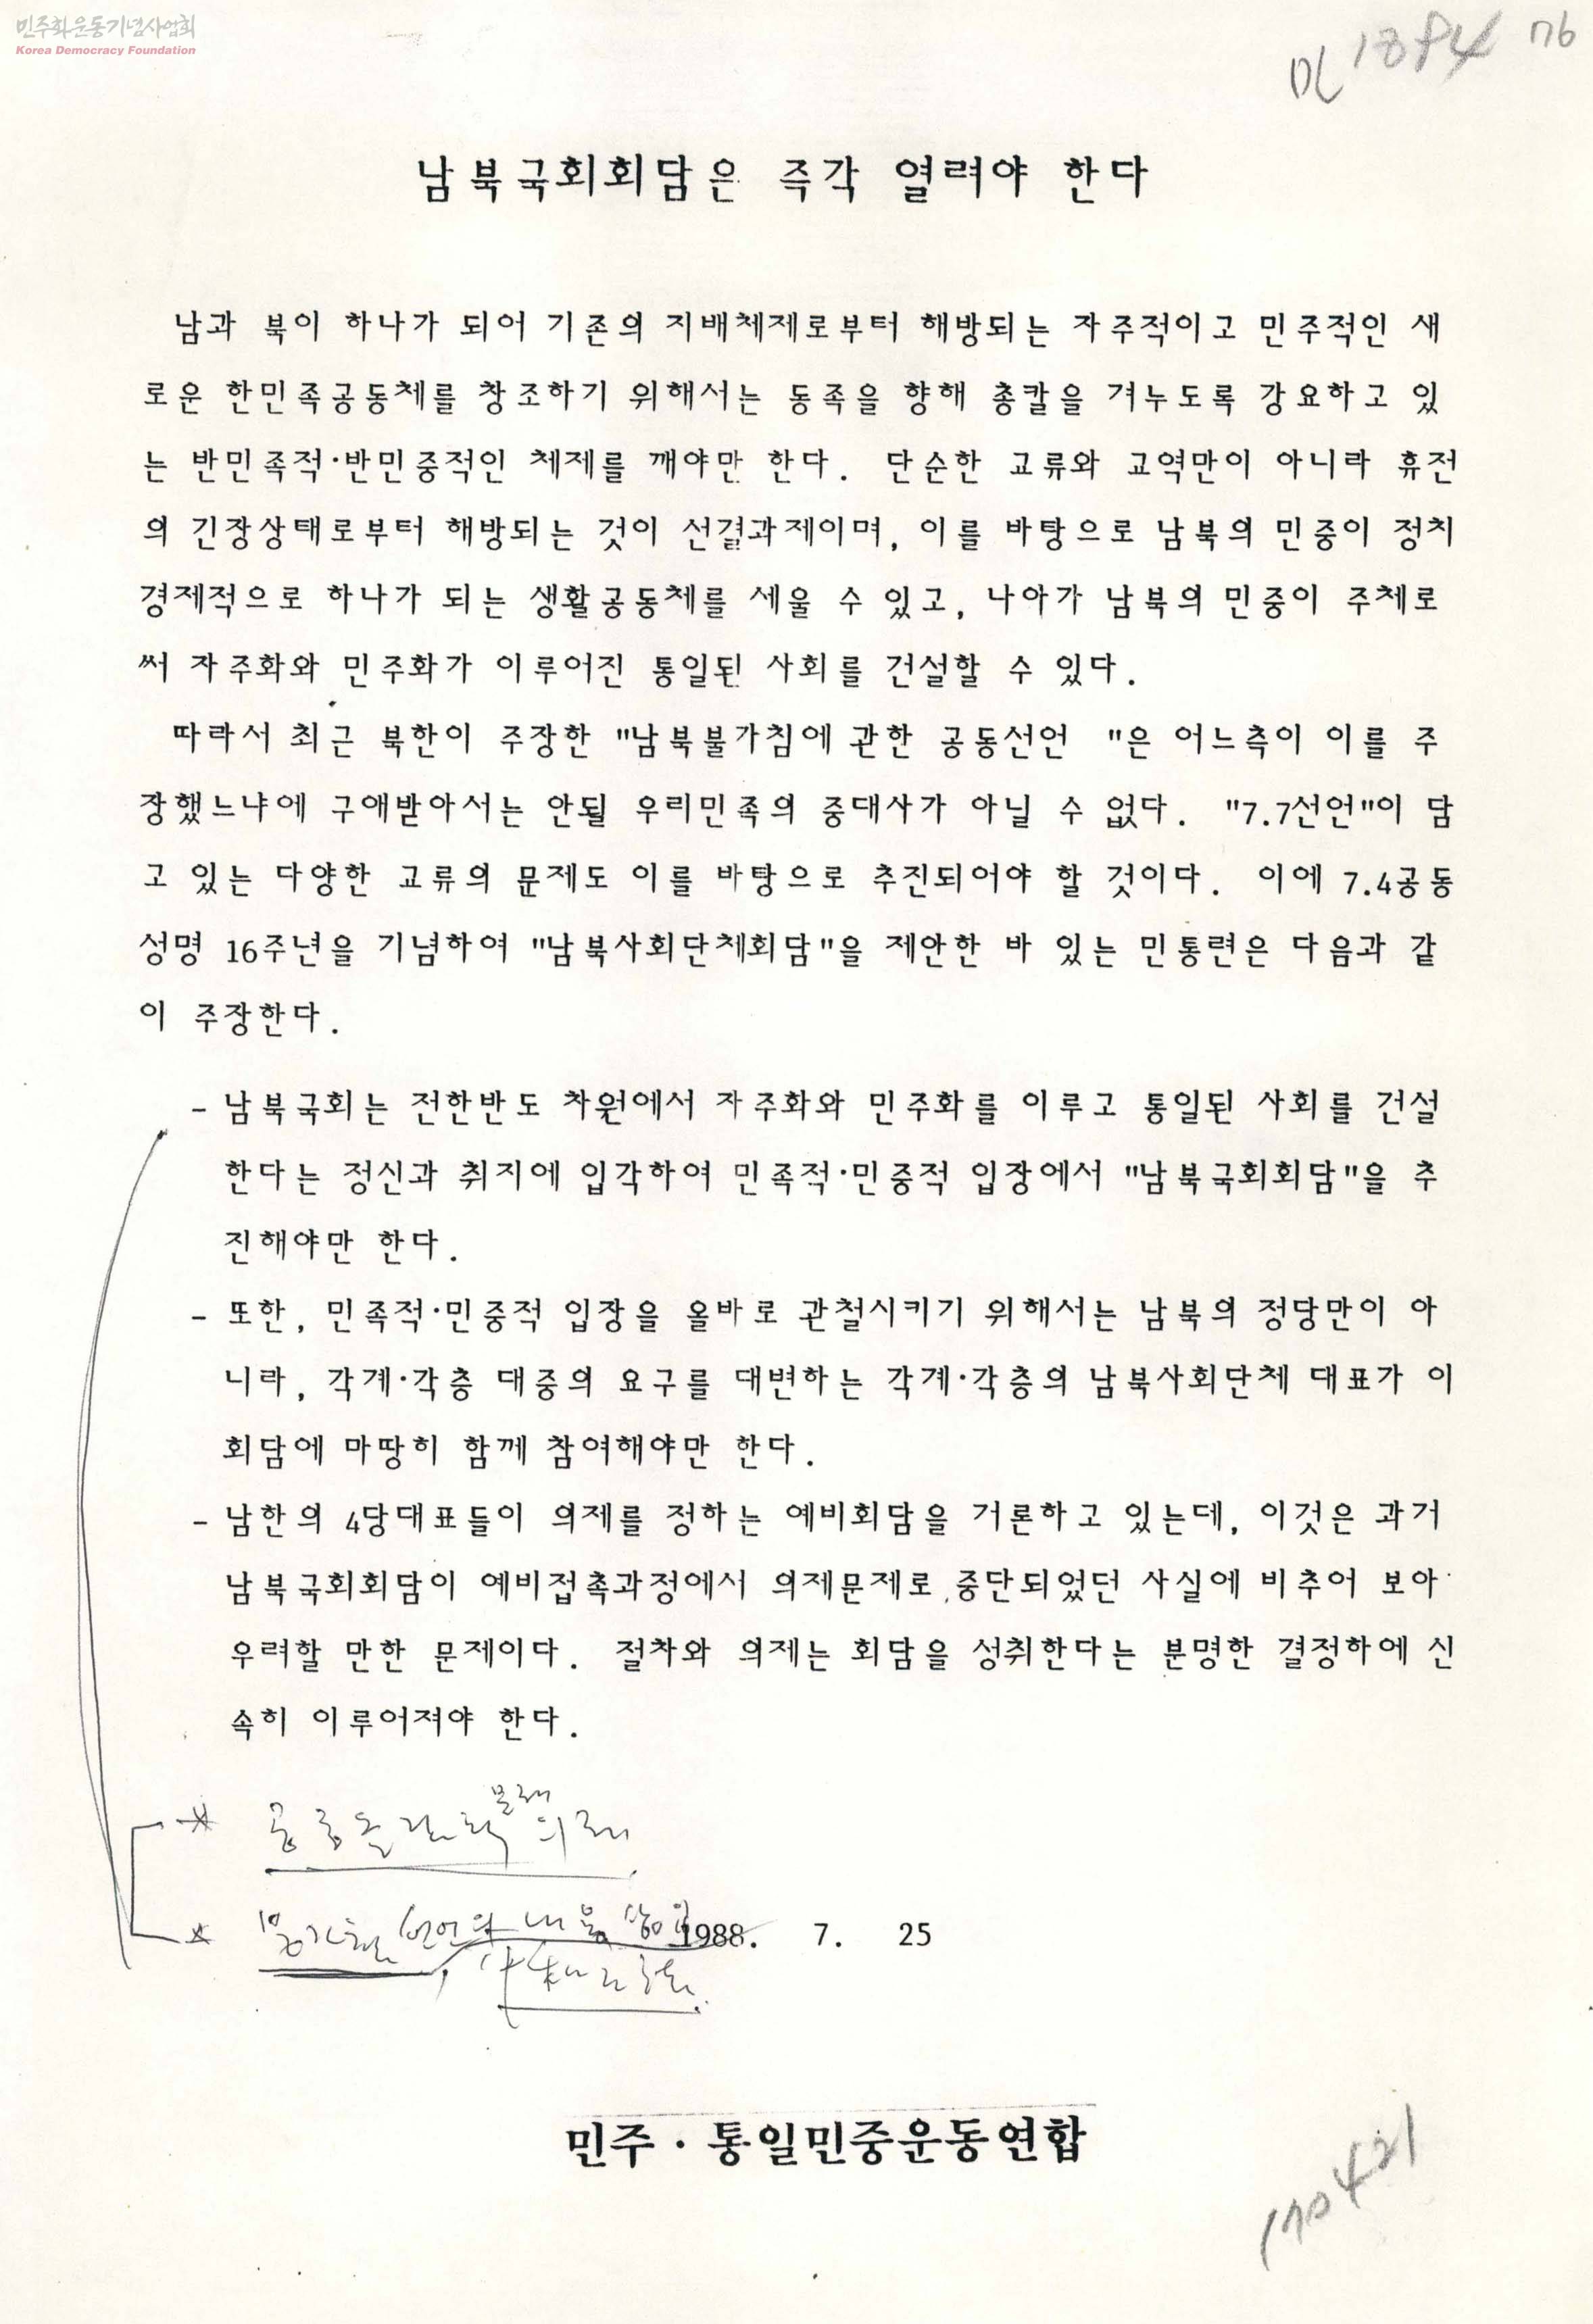 민주화운동기념사업회
Korea Democracy Foundation
76
남북국회회담은 즉각 열려야 한다
남과 북이 하나가 되어 기존의 지배체제로부터 해방되는 자주적이고 민주적인 새
로운 한민족공동체를 창조하기 위해서는 동족을 향해 총칼을 겨누도록 강요하고 있
는 반민족적·반민중적인 체제를 깨야만 한다. 단순한 교류와 교역만이 아니라 휴전
의 긴장상태로부터 해방되는 것이 선결과제이며, 이를 바탕으로 남북의 민중이 정치
경제적으로 하나가 되는 생활공동체를 세울 수 있고, 나아가 남북의 민중이 주체로
써 자주화와 민주화가 이루어진 통일된 사회를 건설할 수 있다.
따라서 최근 북한이 주장한 "남북불가침에 관한 공동선언 "은 어느측이 이를 주
장했느냐에 구애받아서는 안될 우리민족의 중대사가 아닐 수 없다. "7.7선언"이 담
고 있는 다양한 교류의 문제도 이를 바탕으로 추진되어야 할 것이다. 이에 7.4공동
성명 16주년을 기념하여 "남북사회단체회담"을 제안한 바 있는 민통련은 다음과 같
이 주장한다.
- 남북국회는 전한반도 차원에서 자주화와 민주화를 이루고 통일된 사회를 건설
한다는 정신과 취지에 입각하여 민족적·민중적 입장에서 "남북국회회담"을 추
진해야만 한다.
- 또한, 민족적·민중적 입장을 올바로 관철시키기 위해서는 남북의 정당만이 아
니라, 각계·각층 대중의 요구를 대변하는 각계·각층의 남북사회단체 대표가 이
회담에 마땅히 함께 참여해야만 한다.
- 남한의 4당대표들이 의제를 정하는 예비회담을 거론하고 있는데, 이것은 과거
남북국회회담이 예비접촉과정에서 의제문제로 중단되었던 사실에 비추어 보아
우려할 만한 문제이다. 절차와 의제는 회담을 성취한다는 분명한 결정하에 신
속히 이루어져야 한다.
1988. 7. 25
민주·통일민중운동연합
170421